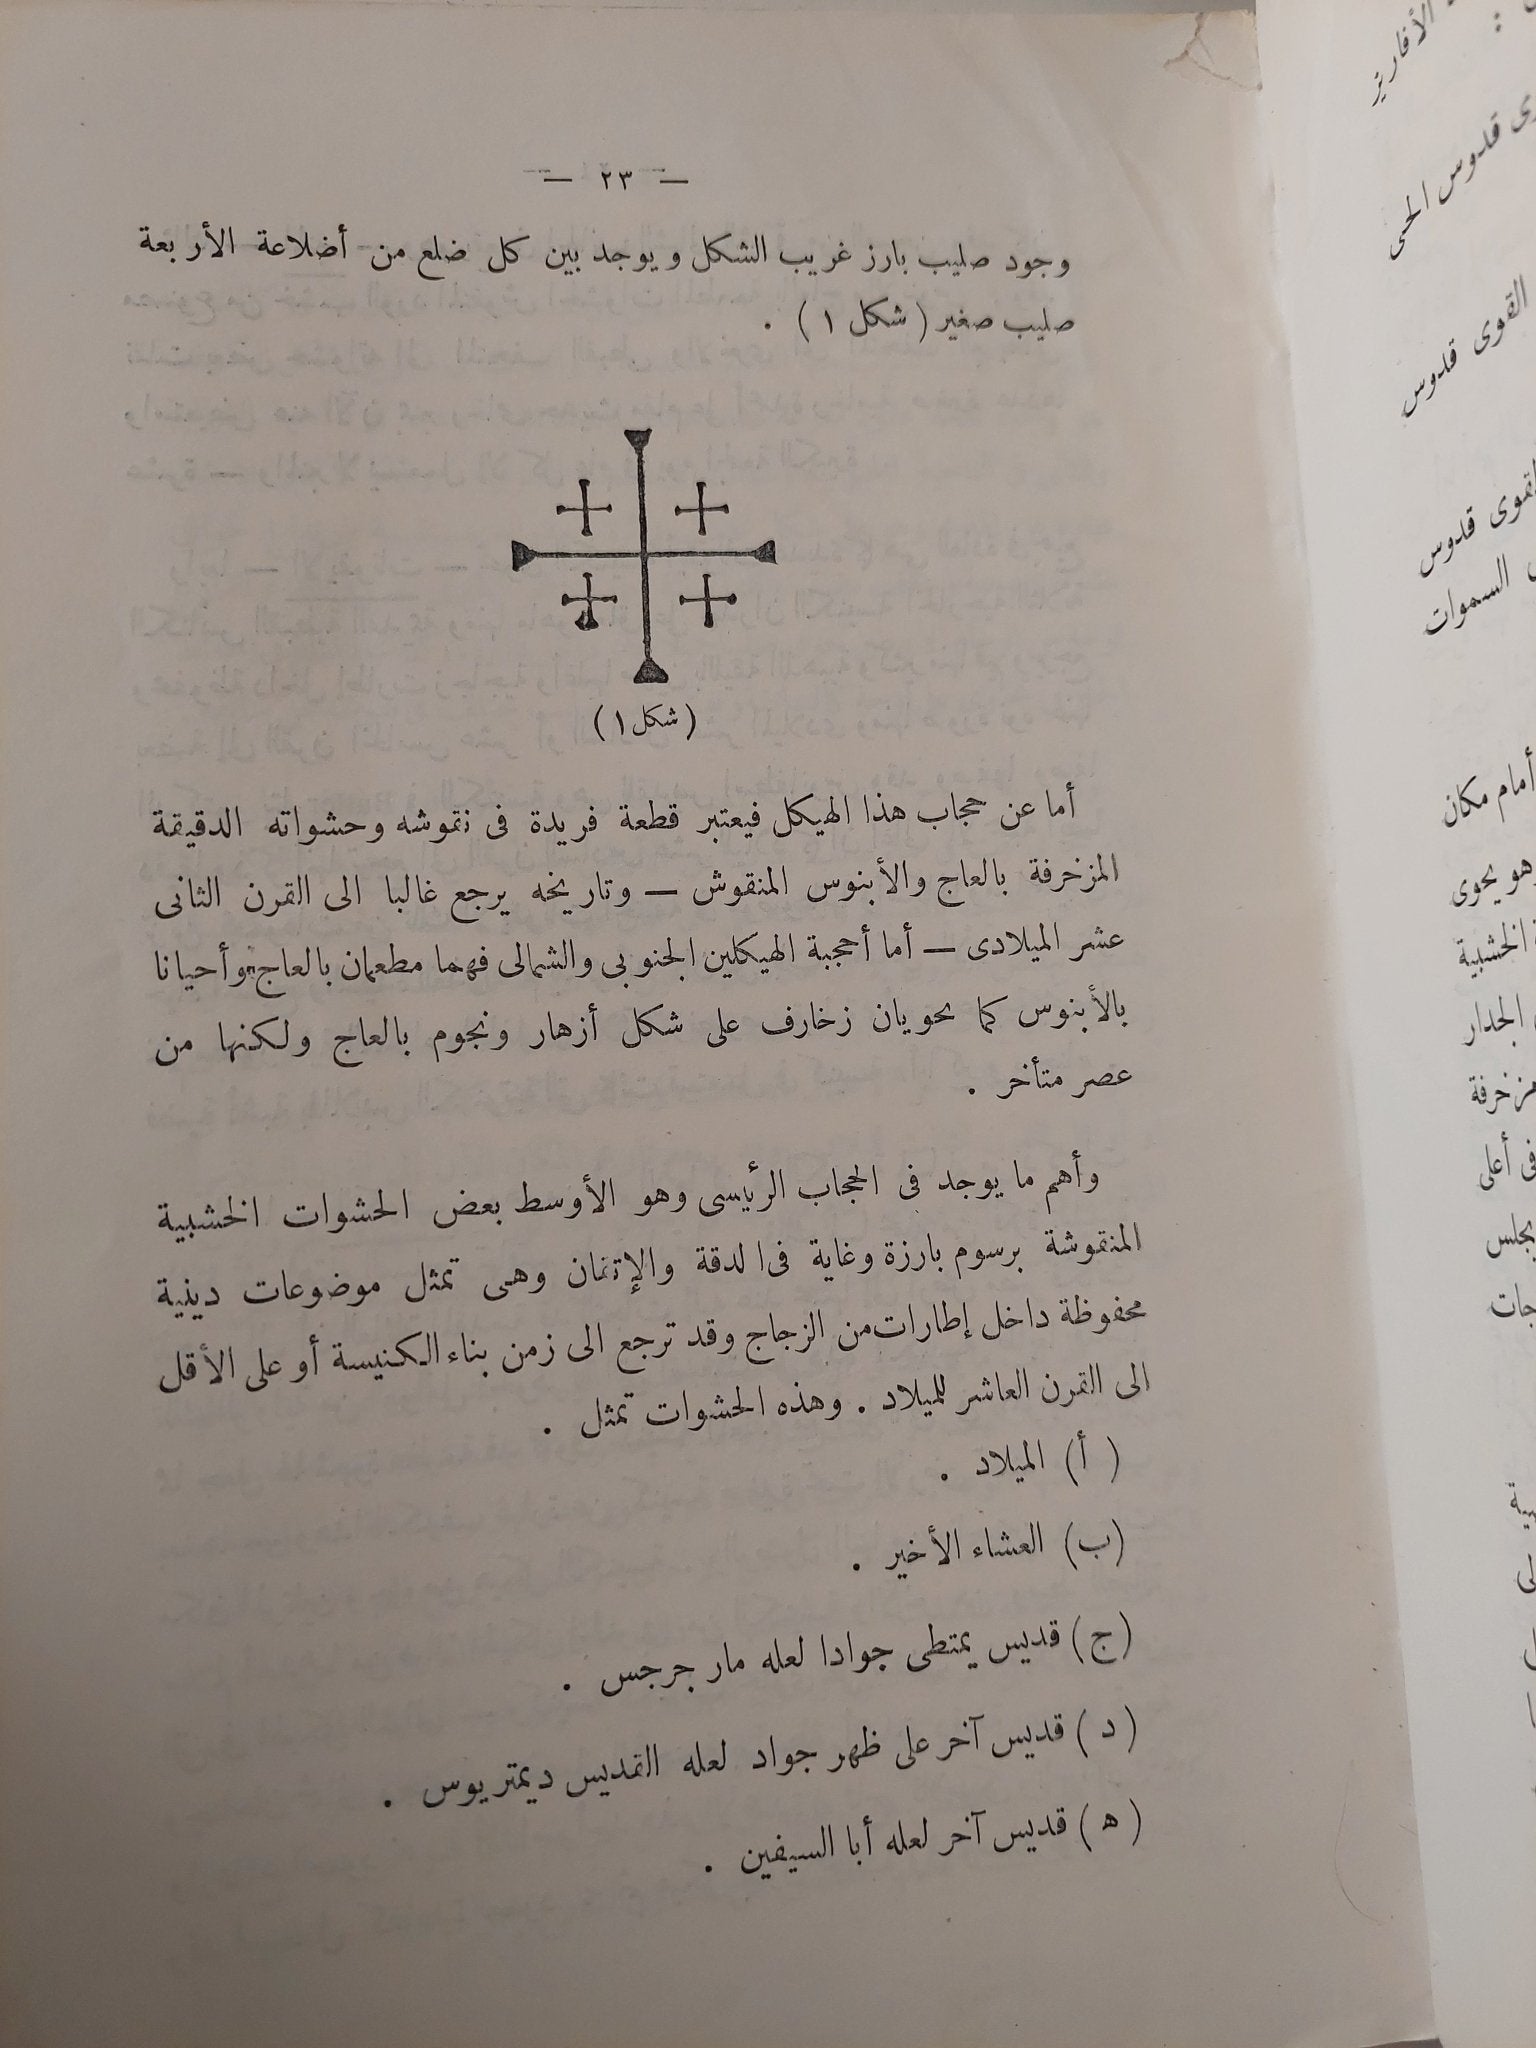 — ٢٣ —
وجود صليب بارز غريب الشكل ويوجد بين كل ضلع من أضلاعة الأربعة
صليب صغير ( شكل ١ ) .
( شكل ١ )
أما عن حجاب هذا الهيكل فيعتبر قطعة فريدة فى نقوشه وحشواته الدقيقة
المزخرفة بالعاج والأبنوس المنقوش — وتاريخه يرجع غالبا الى القرن الثانى
عشر الميلادى — أما أحجبة الهيكلين الجنوبى والشمالى فهما مطعمان بالعاج وأحيانا
بالأبنوس كما يحويان زخارف على شكل أزهار ونجوم بالعاج ولكنها من
عصر متأخر .
وأهم ما يوجد فى الحجاب الرئيسى وهو الأوسط بعض الحشوات الخشبية
المنقوشة برسوم بارزة وغاية فى الدقة والإتقان وهى تمثل موضوعات دينية
محفوظة داخل إطارات من الزجاج وقد ترجع الى زمن بناء الكنيسة أو على الأقل
الى القرن العاشر للميلاد . وهذه الحشوات تمثل .
( أ ) الميلاد .
(ب) العشاء الأخير .
(ج) قديس يمتطى جوادا لعله مار جرجس .
( د ) قديس آخر على ظهر جواد لعله القديس ديمتريوس .
( ه ) قديس آخر لعله أبا السيفين .
الأفاريز
قدوس الحى
القوى قدوس
القوى قدوس
السموات
أمام مكان
وهو يحوى
الخشبية
الجدار
مزخرفة
فى أعلى
يجلس